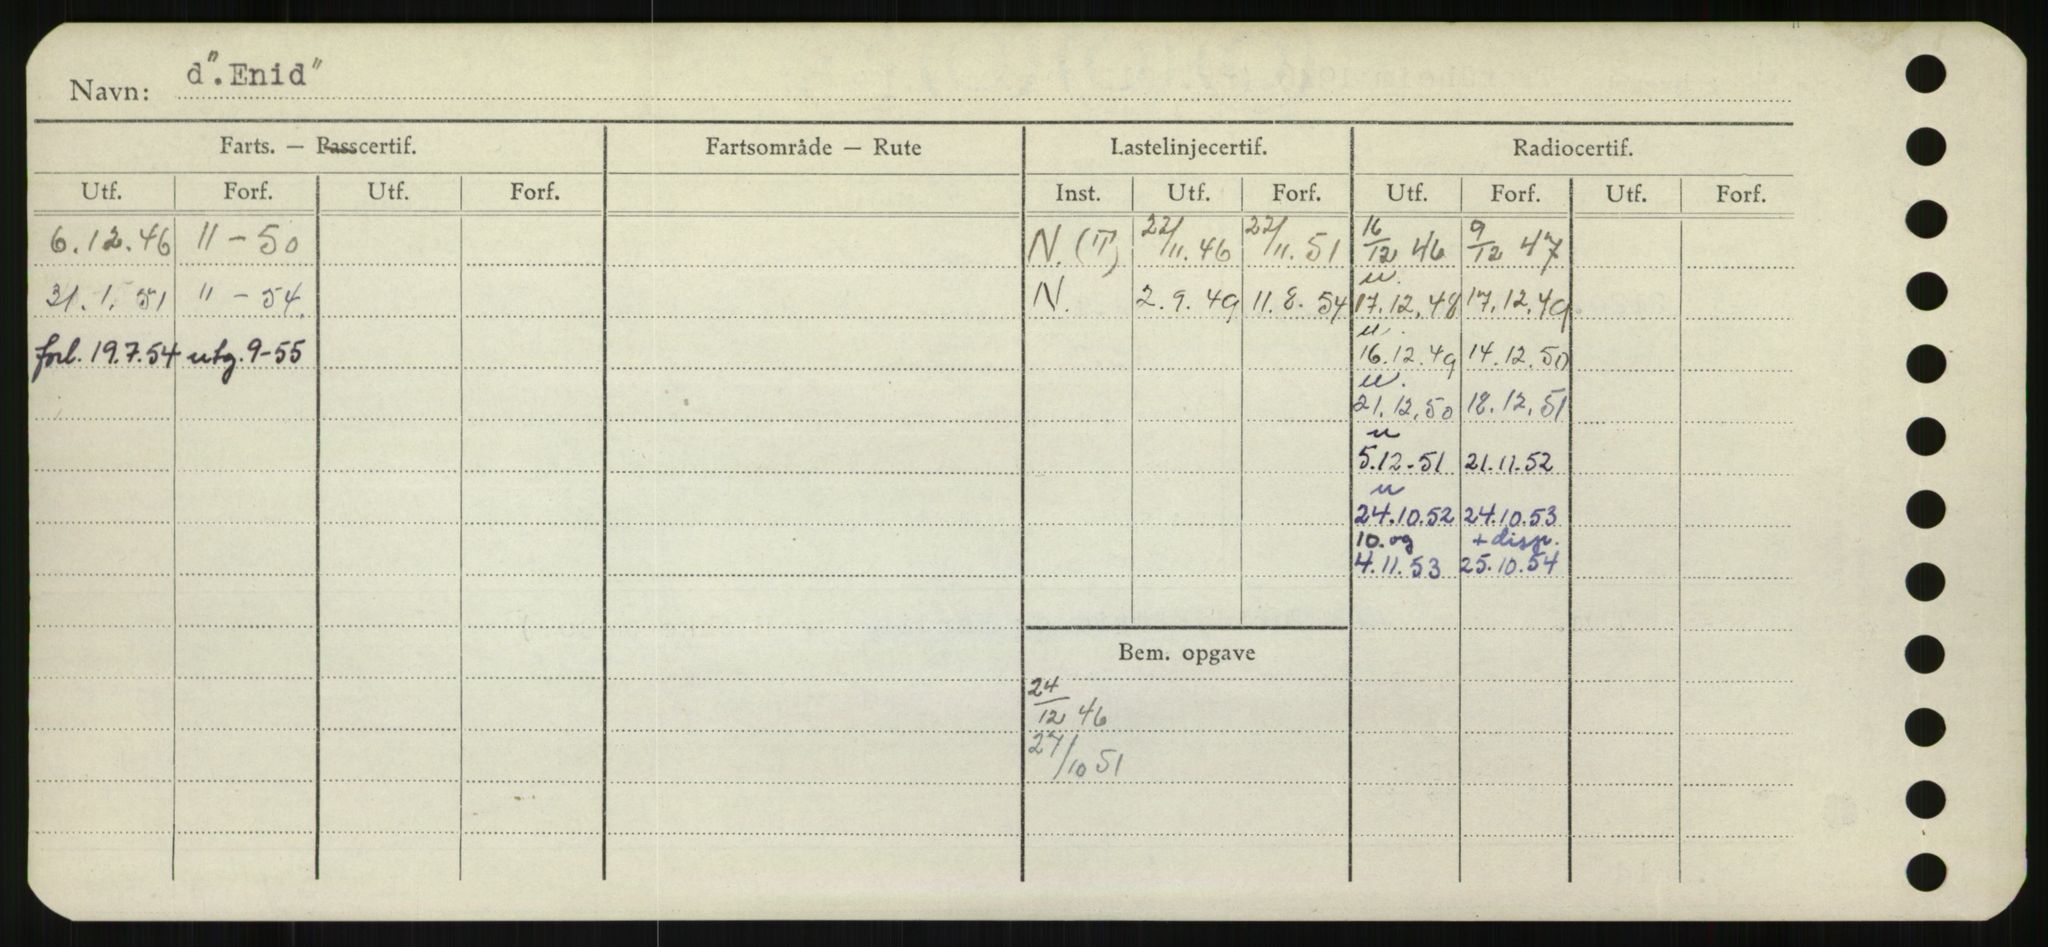 Navn: d".Enid"
Farts. — Passcertif. Fartsområde — Rute Lastelinjecertif. Radiocertif.
Utf. Forf. Utf. Forf. Inst. Utf. Forf. Utf. Forf. Utf. Forf.
6.12.46 11-50 N. (T) 22/11.46 22/11.51 16/12 46 9/12 47
u.
31.1.51 " - 54. N. 2.9.49 11.8.54 17.12.48 17.12.49
u.
forl. 19.7.54 utg. 9-55 16.12.49 14.12.50
u.
21.12.50 18.12.51
u
5.12-51 21.11.52
u
24.10.52 24.10.53
10. og + disp.
4.11.53 25.10.54
Bem. opgave
24/12 46
27/10 51